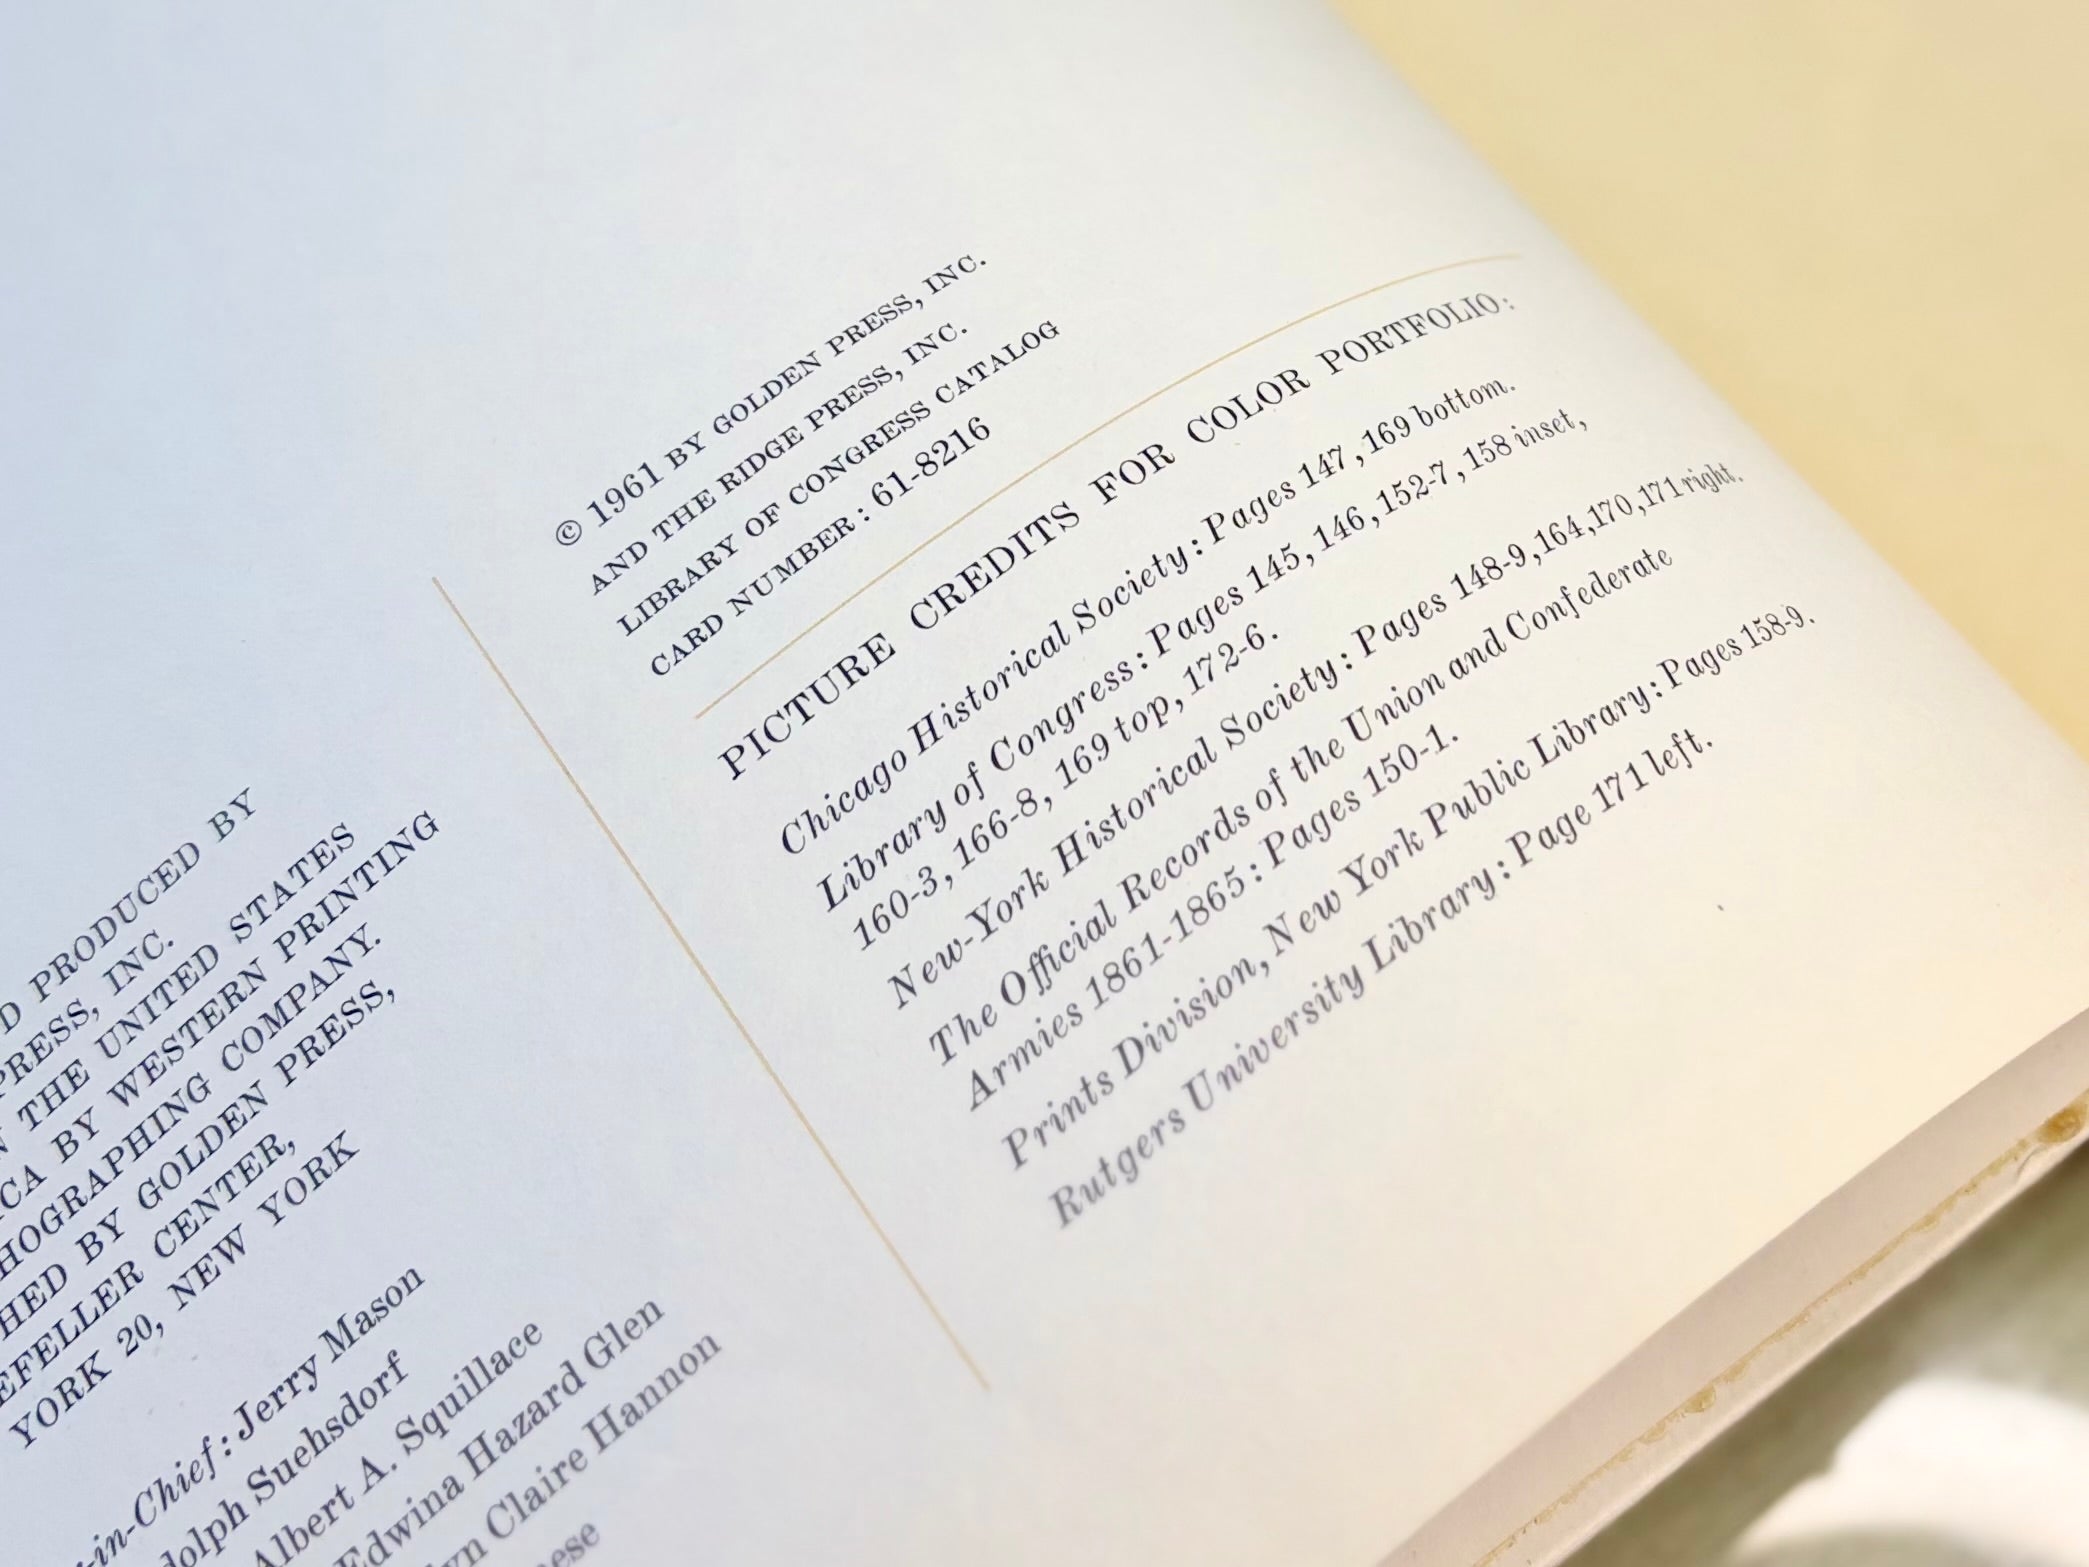 D PRODUCED BY
PRESS, INC.
THE UNITED STATES
BY WESTERN PRINTING
COMPANY.
BY GOLDEN PRESS,
CENTER,
YORK 20, NEW YORK
-in-Chief: Jerry Mason
Suehsdorf
Albert A. Squillace
Edwina Hazard Glen
Claire Hannon
© 1961 BY GOLDEN PRESS, INC.
AND THE RIDGE PRESS, INC.
LIBRARY OF CONGRESS CATALOG
CARD NUMBER: 61-8216
PICTURE CREDITS FOR COLOR PORTFOLIO:
Chicago Historical Society: Pages 147, 169 bottom.
Library of Congress: Pages 145, 146, 152-7, 158 inset,
160-3, 166-8, 169 top, 172-6.
New-York Historical Society: Pages 148-9, 164, 170, 171 right.
The Official Records of the Union and Confederate
Armies 1861-1865: Pages 150-1.
Prints Division, New York Public Library: Pages 158-9.
Rutgers University Library: Page 171 left.